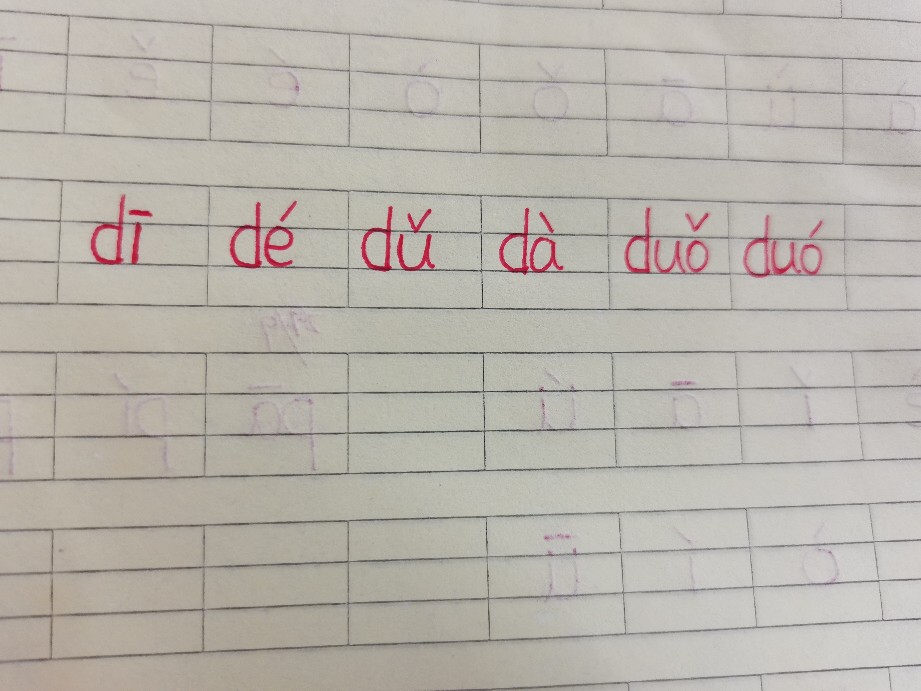 dī dé dǔ dà duǒ duó